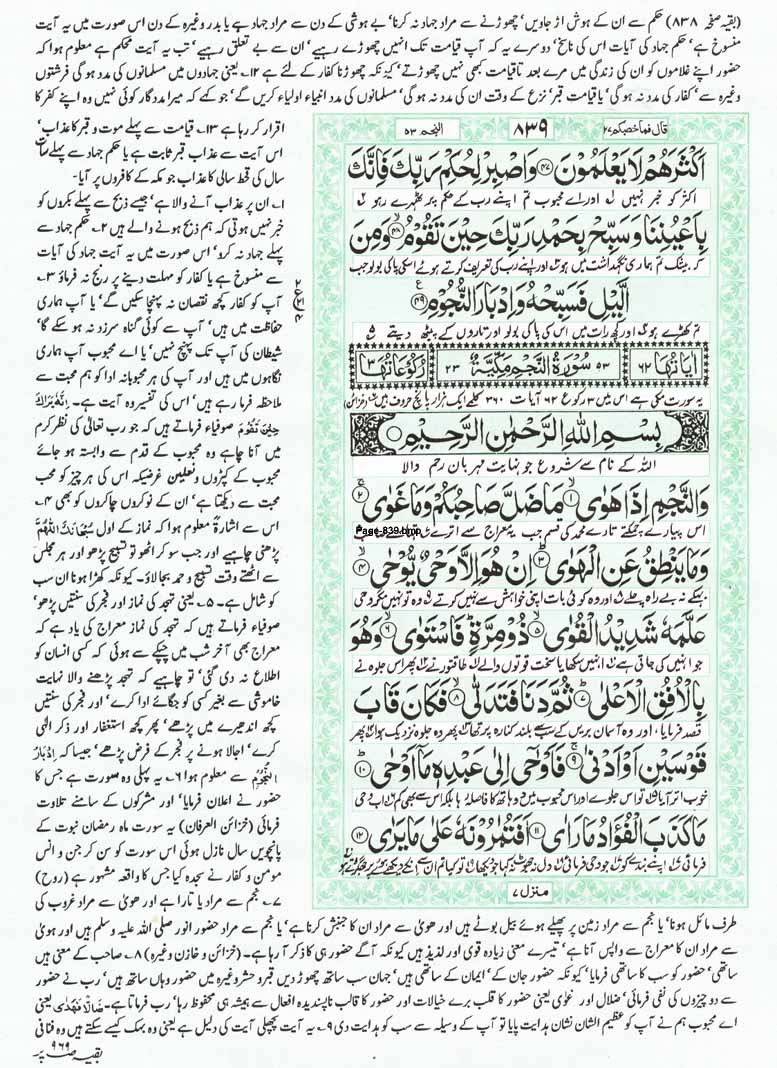 (بقیہ صفحہ ۸۳۸) حکم سے ان کے ہوش اڑ جاویں' چھوڑنے سے مراد جہاد نہ کرنا' بے ہوشی کے دن سے مراد جہاد ہے یا بدر وغیرہ کے دن اس صورت میں یہ آیت
منسوخ ہے' حکم جہاد کی آیات اس کی ناسخ' دوسرے یہ کہ آپ قیامت تک انہیں چھوڑے رہیے' ان سے بے تعلق رہیے' تب یہ آیت محکم ہے معلوم ہوا کہ
حضور اپنے غلاموں کو ان کی زندگی میں مرے بعد تاقیامت کبھی نہیں چھوڑتے' کیونکہ چھوڑنا کفار کے لئے ہے ۱۲۔ یعنی جہادوں میں مسلمانوں کی مدد ہو گی فرشتوں
وغیرہ سے' کفار کی مدد نہ ہو گی' یا قیامت قبر' نزع کے وقت ان کی مدد نہ ہو گی' مسلمانوں کی مدد انبیاء اولیاء کریں گے' جو کہے کہ میرا مددگار کوئی نہیں وہ اپنے کفر کا
اقرار کر رہا ہے ۱۳۔ قیامت سے پہلے موت و قبر کا عذاب'
اس آیت سے عذاب قبر ثابت ہے یا حکم جہاد سے پہلے سات
سال کی قحط سالی کا عذاب جو مکہ کے کافروں پر آیا۔
۱۔ ان پر عذاب آنے والا ہے' جیسے ذبح سے پہلے بکروں کو
خبر نہیں ہوتی کہ ہم ذبح ہونے والے ہیں ۲۔ حکم جہاد سے
پہلے جہاد نہ کرو' اس صورت میں یہ آیت جہاد کی آیات
سے منسوخ ہے یا کفار کو مہلت دینے پر رنج نہ فرماؤ ۳۔
آپ کو کفار کچھ نقصان نہ پہنچا سکیں گے' یا آپ ہماری
حفاظت میں ہیں' آپ سے کوئی گناہ سرزد نہ ہو سکے گا'
شیطان کی آپ تک پہنچ نہیں' یا اے محبوب آپ ہماری
نگاہوں میں ہیں اور آپ کی ہر محبوبانہ ادا کو ہم محبت سے
ملاحظہ فرما رہے ہیں' اس کی تفسیر وہ آیت ہے۔ اِنَّهٗ یَرٰىكَ
حِیۡنَ تَقُوۡمُ صوفیاء فرماتے ہیں کہ جو رب تعالیٰ کی نظر کرم
میں آنا چاہے وہ محبوب کے قدم سے وابستہ ہو جائے
محبوب کے کپڑوں و نعلین غرضیکہ اس کی ہر چیز کو محب
محبت سے دیکھتا ہے' ان کے نوکروں چاکروں کو بھی ۴۔
اس سے اشارۃً معلوم ہوا کہ نماز کے اول سُبْحَانَكَ اللّٰهُمَّ
پڑھنی چاہیے اور جب سو کر اٹھو تو تسبیح پڑھو اور ہر مجلس
سے اٹھتے وقت تسبیح و حمد بجا لاؤ۔ کیونکہ کھڑا ہونا ان سب
کو شامل ہے۔ ۵۔ یعنی تہجد کی نماز اور فجر کی سنتیں پڑھو'
صوفیاء فرماتے ہیں کہ تہجد کی نماز معراج کی یاد ہے کہ
معراج بھی آخر شب میں چپکے سے ہوئی کہ کسی انسان کو
اطلاع نہ دی گئی' تو چاہیے کہ تہجد پڑھنے والا نہایت
خاموشی سے بغیر کسی کو جگائے ادا کرے' اور فجر کی سنتیں
کچھ اندھیرے میں پڑھے' پھر کچھ استغفار اور ذکر الٰہی
کرے' اجالا ہونے پر فجر کے فرض پڑھے' جیسا کہ اِدْبَارَ
النُّجُوْمِ سے معلوم ہوا ۶۔ یہ پہلی وہ صورت ہے جس کا
حضور نے اعلان فرمایا' اور مشرکوں کے سامنے تلاوت
فرمائی (خزائن العرفان) یہ سورت ماہ رمضان نبوت کے
پانچویں سال نازل ہوئی اس سورت کو سن کر جن و انس
مومن و کفار نے سجدہ کیا جس کا واقعہ مشہور ہے (روح)
۷۔ نجم سے مراد یا تارا ہے اور ھویٰ سے مراد غروب کی
۲
ع
۲۱
۴
قال فما خطبکم ۲۷
۸۳۹
النجم ۵۳
اَكۡثَرَهُمۡ لَا يَعۡلَمُوۡنَ ﴿۴۷﴾ وَاصۡبِرۡ لِحُكۡمِ رَبِّكَ فَاِنَّكَ
اکثر کو خبر نہیں اور اے محبوب تم اپنے رب کے حکم پر ٹھہرے رہو
بِاَعۡيُنِنَا وَسَبِّحۡ بِحَمۡدِ رَبِّكَ حِيۡنَ تَقُوۡمُ ﴿۴۸﴾ وَمِنَ
کہ بیشک تم ہماری نگہداشت میں ہو اور اپنے رب کی تعریف کرتے ہوئے اسکی پاکی بولو جب
الَّيۡلِ فَسَبِّحۡهُ وَاِدۡبَارَ النُّجُوۡمِ ﴿۴۹﴾
تم کھڑے ہو اور کچھ رات میں اس کی پاکی بولو اور تاروں کے پیٹھ دیتے
اٰیَاتُهَا ۶۲
۵۳ سُوۡرَةُ النَّجۡمِ مَكِّیَّةٌ ۲۳
رُكُوۡعَاتُهَا ۳
یہ سورت مکی ہے اس میں ۳ رکوع ۶۲ آیات ۳۶۰ کلمے ایک ہزار چار سو پانچ حروف ہیں (خزائن)
بِسۡمِ اللّٰهِ الرَّحۡمٰنِ الرَّحِيۡمِ
اللہ کے نام سے شروع جو نہایت مہربان رحم والا
وَالنَّجۡمِ اِذَا هَوٰى ﴿۱﴾ مَا ضَلَّ صَاحِبُكُمۡ وَمَا غَوٰى ﴿۲﴾
اس پیارے چمکتے تارے محمد کی قسم جب یہ معراج سے اترے تمہارے صاحب
Page-839.bmp
وَمَا يَنۡطِقُ عَنِ الۡهَوٰى ﴿۳﴾ اِنۡ هُوَ اِلَّا وَحۡىٌ يُّوۡحٰى ﴿۴﴾
نہ بہکے نہ بے راہ چلے اور وہ کوئی بات اپنی خواہش سے نہیں کرتے وہ تو نہیں مگر وحی
عَلَّمَهٗ شَدِيۡدُ الۡقُوٰى ﴿۵﴾ ذُوۡ مِرَّةٍ فَاسۡتَوٰى ﴿۶﴾ وَهُوَ
جو انہیں کی جاتی ہے انہیں سکھایا سخت قوتوں والے طاقتور نے پھر اس جلوہ نے
بِالۡاُفُقِ الۡاَعۡلٰى ﴿۷﴾ ثُمَّ دَنَا فَتَدَلّٰى ﴿۸﴾ فَكَانَ قَابَ
قصد فرمایا، اور وہ آسمان بریں کے سب سے بلند کنارہ پر تھا پھر وہ جلوہ نزدیک ہوا پھر
قَوۡسَيۡنِ اَوۡ اَدۡنٰى ﴿۹﴾ فَاَوۡحٰۤى اِلٰى عَبۡدِهٖ مَاۤ اَوۡحٰى ﴿۱۰﴾
خوب اتر آیا تو اس جلوے اور اس محبوب میں دو ہاتھ کا فاصلہ رہا بلکہ اس سے بھی کم اب وحی
مَا كَذَبَ الۡفُؤَادُ مَا رَاٰى ﴿۱۱﴾ اَفَتُمٰرُوۡنَهٗ عَلٰى مَا يَرٰى ﴿۱۲﴾
فرمائی اپنے بندے کو جو وحی فرمائی دل نے جھوٹ نہ کہا جو دیکھا تو کیا تم ان سے انکے دیکھے ہوئے پر جھگڑتے ہو
منزل ۷
طرف مائل ہونا' یا نجم سے مراد زمین پر پھیلے ہوئے بیل بوٹے ہیں اور ھویٰ سے مراد ان کا جنبش کرنا ہے' یا نجم سے مراد حضور انور صلی اللہ علیہ وسلم ہیں اور ہویٰ
سے مراد ان کا معراج سے واپس آنا ہے' تیسرے معنی زیادہ قوی اور لذیذ ہیں کیونکہ آگے حضور ہی کا ذکر آ رہا ہے۔ (خزائن و خازن وغیرہ) ۸۔ صاحب کے معنی ہیں
ساتھی' حضور کو سب کا ساتھی فرمایا' کیونکہ حضور جان کے' ایمان کے ساتھی ہیں' جہان سب ساتھ چھوڑ دیں قبر و حشر وغیرہ میں حضور وہاں ساتھ ہیں' رب نے حضور
سے دو چیزوں کی نفی فرمائی' ضلال اور غویٰ یعنی حضور کا قلب برے خیالات اور حضور کا قالب ناپسندیدہ افعال سے ہمیشہ ہی محفوظ رہا' رب فرماتا ہے۔ ضَآلًّا فَهَدٰى یعنی
اے محبوب ہم نے آپ کو عظیم الشان نشان ہدایت پایا تو آپ کے وسیلہ سے سب کو ہدایت دی ۹۔ یہ آیت پچھلی آیت کی دلیل ہے یعنی وہ بہک کیسے سکتے ہیں وہ فنا فی
بقیہ صفحہ ۹۶۹ پر